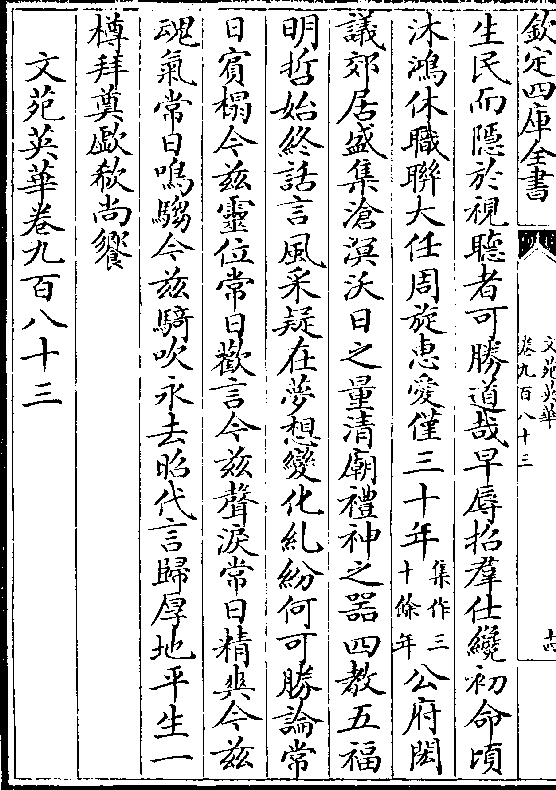 欽定四庫全書
文苑英華
卷九百八十三
十四
生民而隱於視聽者可勝道哉早辱招羣仕纔初命頃
沐鴻休職聯大任周旋惠愛僅三十年集作三十餘年公府閎
議郊居盛集滄溟沃日之量清廟禮神之器四教五福
明哲始終話言風采疑在夢想變化糺紛何可勝論常
日賓榻今兹靈位常日歡言今兹聲淚常日精爽今兹
魂氣常日鳴騶今兹騎吹永去昭代言歸厚地平生一
樽拜奠歔欷尚饗
文苑英華卷九百八十三